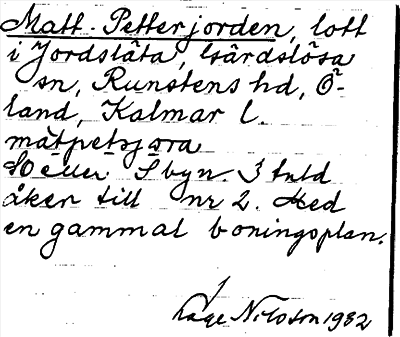 Matt-Petterjorden, lott
i Jordsläta, Gärdslösa
sn, Runstens hd, Ö-
land, Kalmar l.
mätpetsjora
Sbyn. 3 tnld
åker till nr 2. Med
en gammal boningsplan.
Nilsson 1932